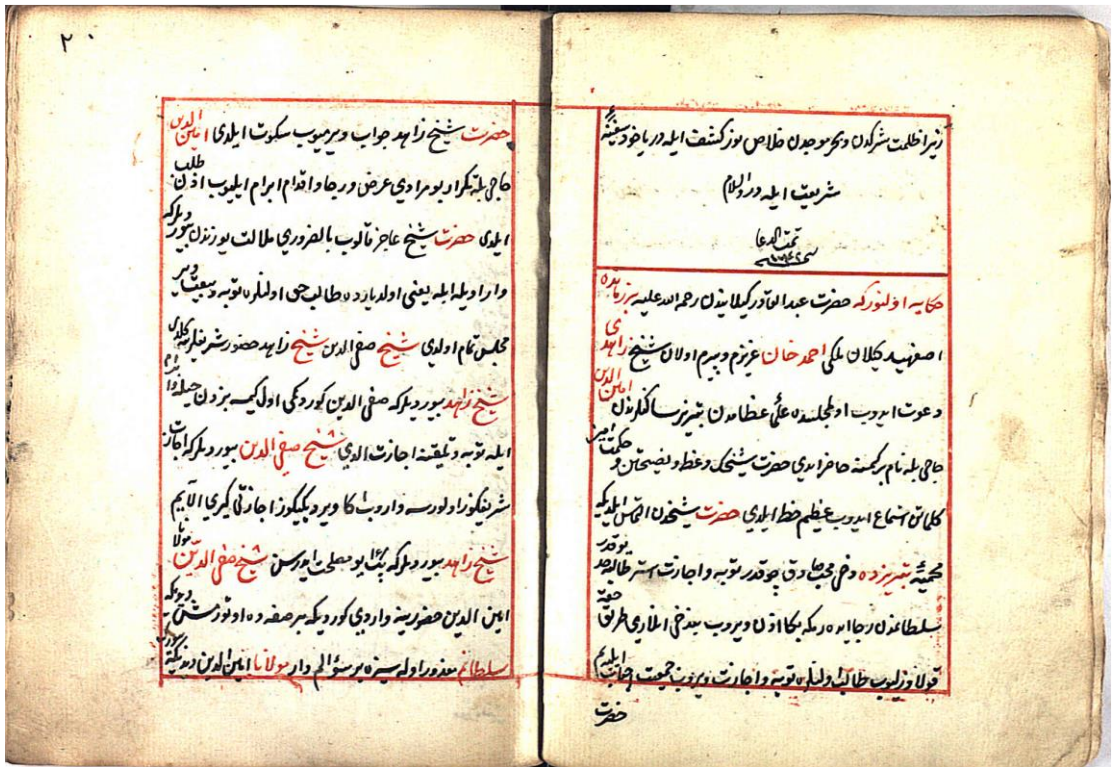 زیرا ظلمت شرکدن و بحر موجدن خلاص نور کشف ایله در یاخود سفینهٔ
شریعت ایله در والسلام
تمت الدعا
حکایه اولنور که حضرت عبد القادر کیلانیدن رحمة الله علیه بر زمانده
اصفهبد کیلان ملکی احمد خان عزیزم و پیرم اولان شیخ زاهدی
دعوت ایدوب اول مجلسده علمای عظامدن تبریز ساکنلرندن امین الدین
حاجی بله نام بر کمسنه حاضر ایدی حضرت شیخک وعظ و نصیحتین و حکمت آمیز
کلماتن استماع ایدوب عظیم حظ ایلدی حضرت شیخدن التماس ایلدیکه
محمیهٔ تبریزده دخی محب صادق چوقدر توبه و اجازت استر طالبه حد یوقدر
سلطانمدن رجا ایده رمکه بکا اذن ویروب بن دخی انلاری طریق حقه
قولاوزلیوب طالب اولنلره توبه و اجازت ویروب جمعیت
حضرت
٢٠
حضرت شیخ زاهد جواب ویرمیوب سکوت ایلدی امین الدین
حاجی بله تکرار بو مرادی عرض و رجا و اقدام ابرام ایلیوب اذن طلب
ایلدی حضرت شیخ عاجز قالوب بالضروری ملالت یوزندن بیوردیلر که
وار اویله ایله یعنی اول دیارده طالب حق اولنلره توبه و بیعت ویر
مجلس تمام اولدی شیخ صفی الدین شیخ زاهد حضور شریفلرینه کلدی
شیخ زاهد بیوردیلر که صفی الدین کوردکمی اول کیمسه بزدن ابرام حیله
ایله توبه و تلقینه اجازت الدی شیخ صفی الدین بیوردیلر که اجازت
شریفکوز اولورسه واروب اکا ویردیکیکوز اجازتی کیری الایم
شیخ زاهد بیوردیلر که یکت بو مصلحت ایدرسن شیخ صفی الدین مولانا
امین الدین حضورینه واردی کوردیکه بر صفه ده اوتورمش دیدیکه
سلطانم معذور اوله سیزه بر سؤالم وار مولانا امین الدین دیدیکه